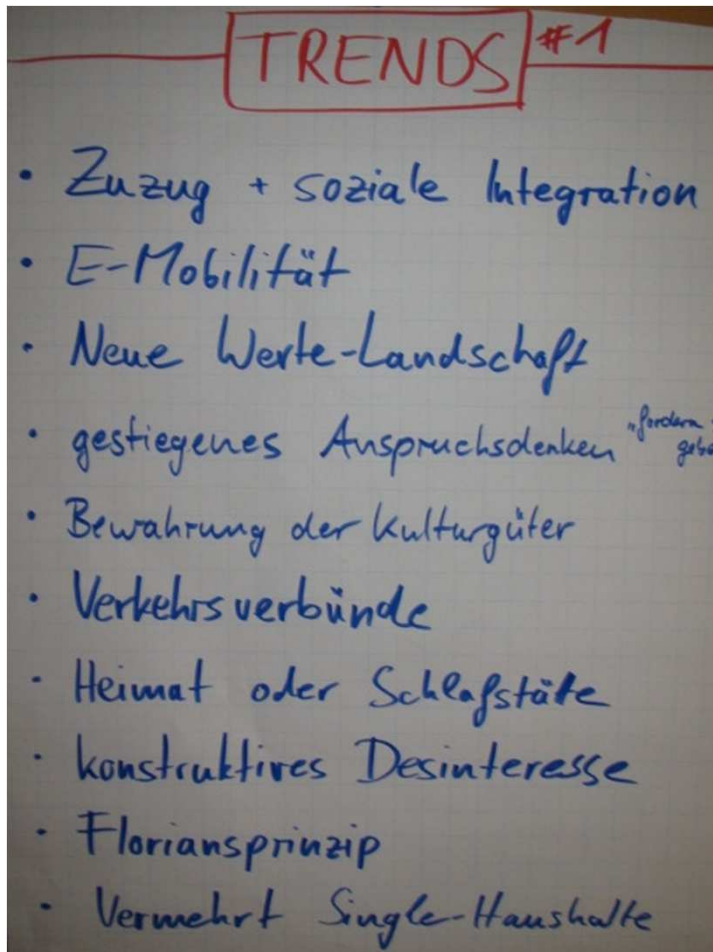 TRENDS #1
• Zuzug + soziale Integration
• E-Mobilität
• Neue Werte-Landschaft
• gestiegenes Anspruchsdenken "fordern
• Bewahrung der Kulturgüter
• Verkehrsverbünde
• Heimat oder Schlafstäte
• konstruktives Desinteresse
• Floriansprinzip
• Vermehrt Single-Haushalte